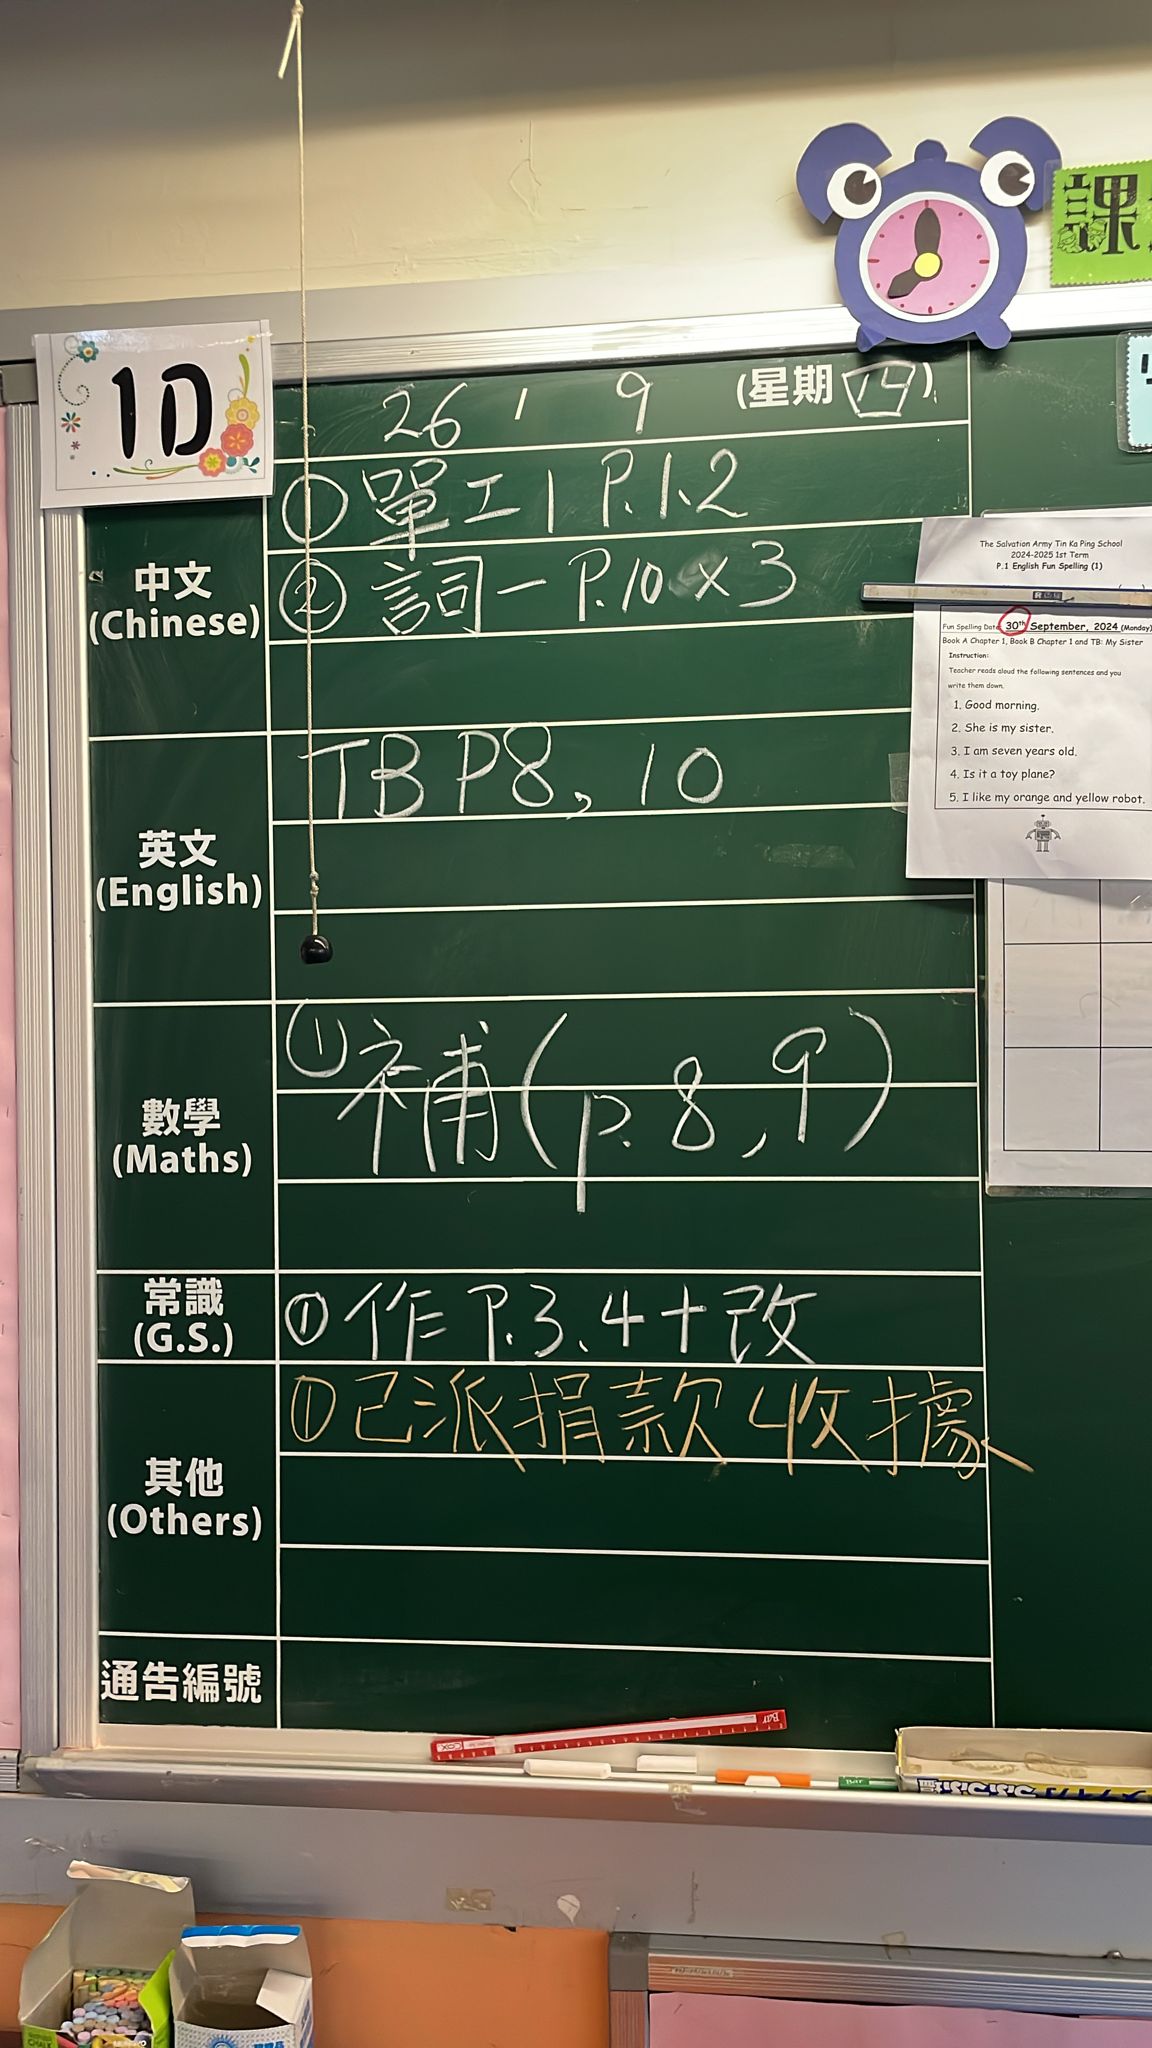 課
1D
26 , 9 (星期四)
中文
(Chinese)
① 單工1 P.1.2
② 詞一 P.10 x 3
英文
(English)
TB P8, 10
數學
(Maths)
① 補(p. 8, 9)
常識
(G.S.)
① 作 P.3、4+改
其他
(Others)
① 已派捐款收據
通告編號
The Salvation Army Tin Ka Ping School
2024-2025 1st Term
P.1 English Fun Spelling (1)
Fun Spelling Date: 30th September, 2024 (Monday)
Book A Chapter 1, Book B Chapter 1 and TB: My Sister
Instruction:
Teacher reads aloud the following sentences and you
write them down.
1. Good morning.
2. She is my sister.
3. I am seven years old.
4. Is it a toy plane?
5. I like my orange and yellow robot.
Bar
COX
Bar
CHALK